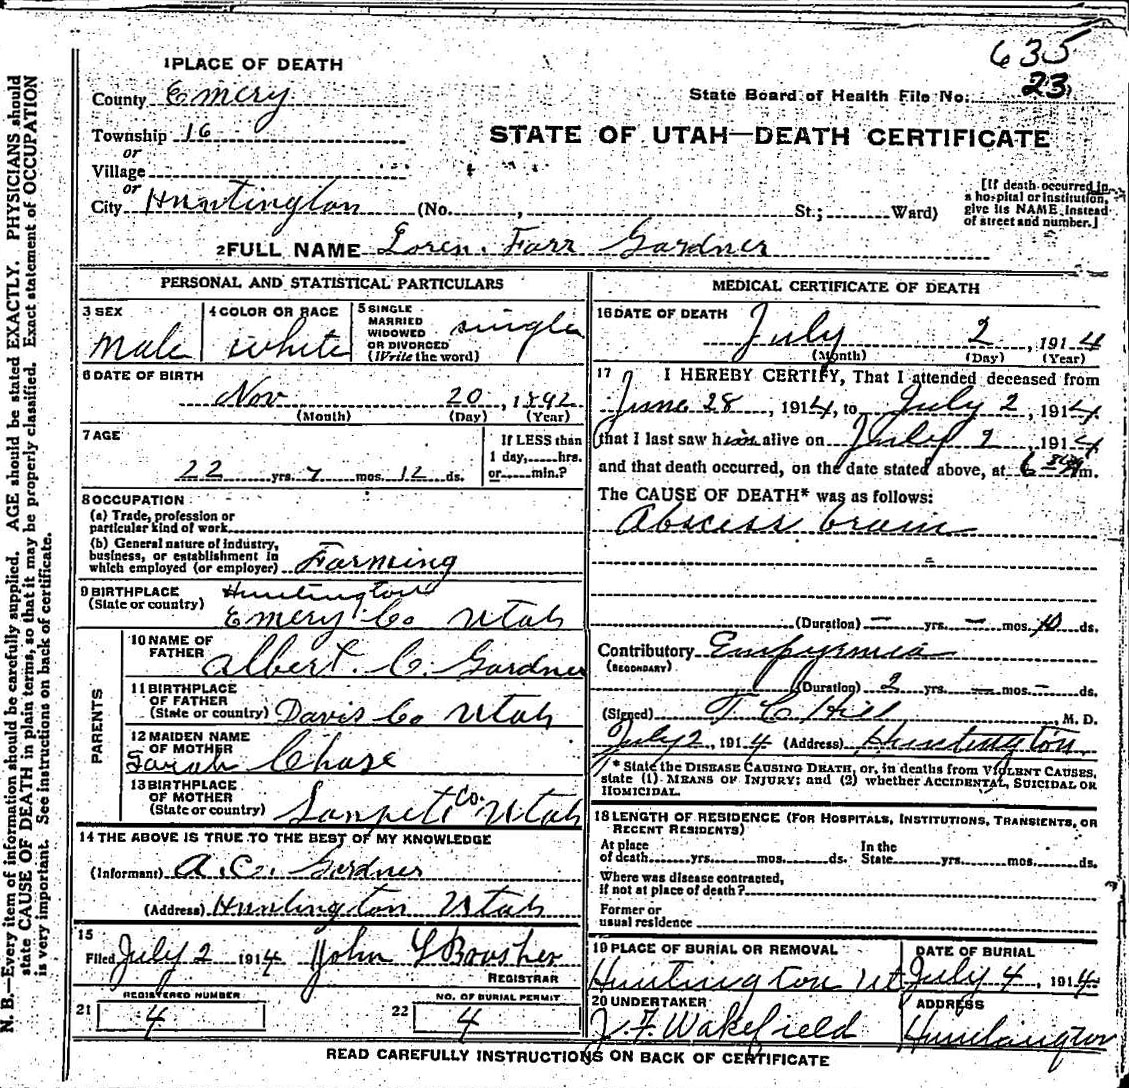 635
23
1 PLACE OF DEATH
County Emery
State Board of Health File No.
Township 16
or
Village
STATE OF UTAH—DEATH CERTIFICATE
or
City Huntington (No. , St.; Ward)
[If death occurred in
a hospital or institution,
give its NAME instead
of street and number.]
2 FULL NAME Loren Farr Gardner
PERSONAL AND STATISTICAL PARTICULARS
3 SEX
Male
4 COLOR OR RACE
White
5 SINGLE
MARRIED
WIDOWED
OR DIVORCED
(Write the word)
single
6 DATE OF BIRTH
Nov 20, 1892
(Month) (Day) (Year)
7 AGE
22 yrs. 7 mos. 12 ds.
If LESS than
1 day, hrs.
or min.?
8 OCCUPATION
(a) Trade, profession or
particular kind of work
(b) General nature of industry,
business, or establishment in
which employed (or employer) Farming
9 BIRTHPLACE
(State or country)
Huntington
Emery Co Utah
PARENTS
10 NAME OF
FATHER
Albert. C. Gardner
11 BIRTHPLACE
OF FATHER
(State or country) Davis Co Utah
12 MAIDEN NAME
OF MOTHER
Sarah Chase
13 BIRTHPLACE
OF MOTHER
(State or country) Sanpete Co. Utah
14 THE ABOVE IS TRUE TO THE BEST OF MY KNOWLEDGE
(Informant) A. C. Gardner
(Address) Huntington Utah
15
Filed July 2 1914 John
REGISTRAR
REGISTERED NUMBER
21 4
NO. OF BURIAL PERMIT
22 4
MEDICAL CERTIFICATE OF DEATH
16 DATE OF DEATH
July 2, 1914
(Month) (Day) (Year)
17 I HEREBY CERTIFY, That I attended deceased from
June 28, 1914, to July 2, 1914
that I last saw him alive on July 2, 1914
and that death occurred, on the date stated above, at 6 m.
The CAUSE OF DEATH* was as follows:
Abscess brain
(Duration) — yrs. — mos. 10 ds.
Contributory Empyrmia
(SECONDARY)
(Duration) 2 yrs. — mos. — ds.
(Signed) T C Hill, M. D.
July 2, 1914 (Address) Huntington
* State the DISEASE CAUSING DEATH, or, in deaths from VIOLENT CAUSES,
state (1) MEANS OF INJURY; and (2) whether ACCIDENTAL, SUICIDAL OR
HOMICIDAL.
18 LENGTH OF RESIDENCE (FOR HOSPITALS, INSTITUTIONS, TRANSIENTS, OR
RECENT RESIDENTS)
At place
of death yrs. mos. ds.
In the
State yrs. mos. ds.
Where was disease contracted,
if not at place of death?
Former or
usual residence
19 PLACE OF BURIAL OR REMOVAL
Huntington Ut
DATE OF BURIAL
July 4, 1914
20 UNDERTAKER
J. F. Wakefield
ADDRESS
Huntington
READ CAREFULLY INSTRUCTIONS ON BACK OF CERTIFICATE
N. B.—Every item of information should be carefully supplied. AGE should be stated EXACTLY. PHYSICIANS should
state CAUSE OF DEATH in plain terms, so that it may be properly classified. Exact statement of OCCUPATION
is very important. See instructions on back of certificate.